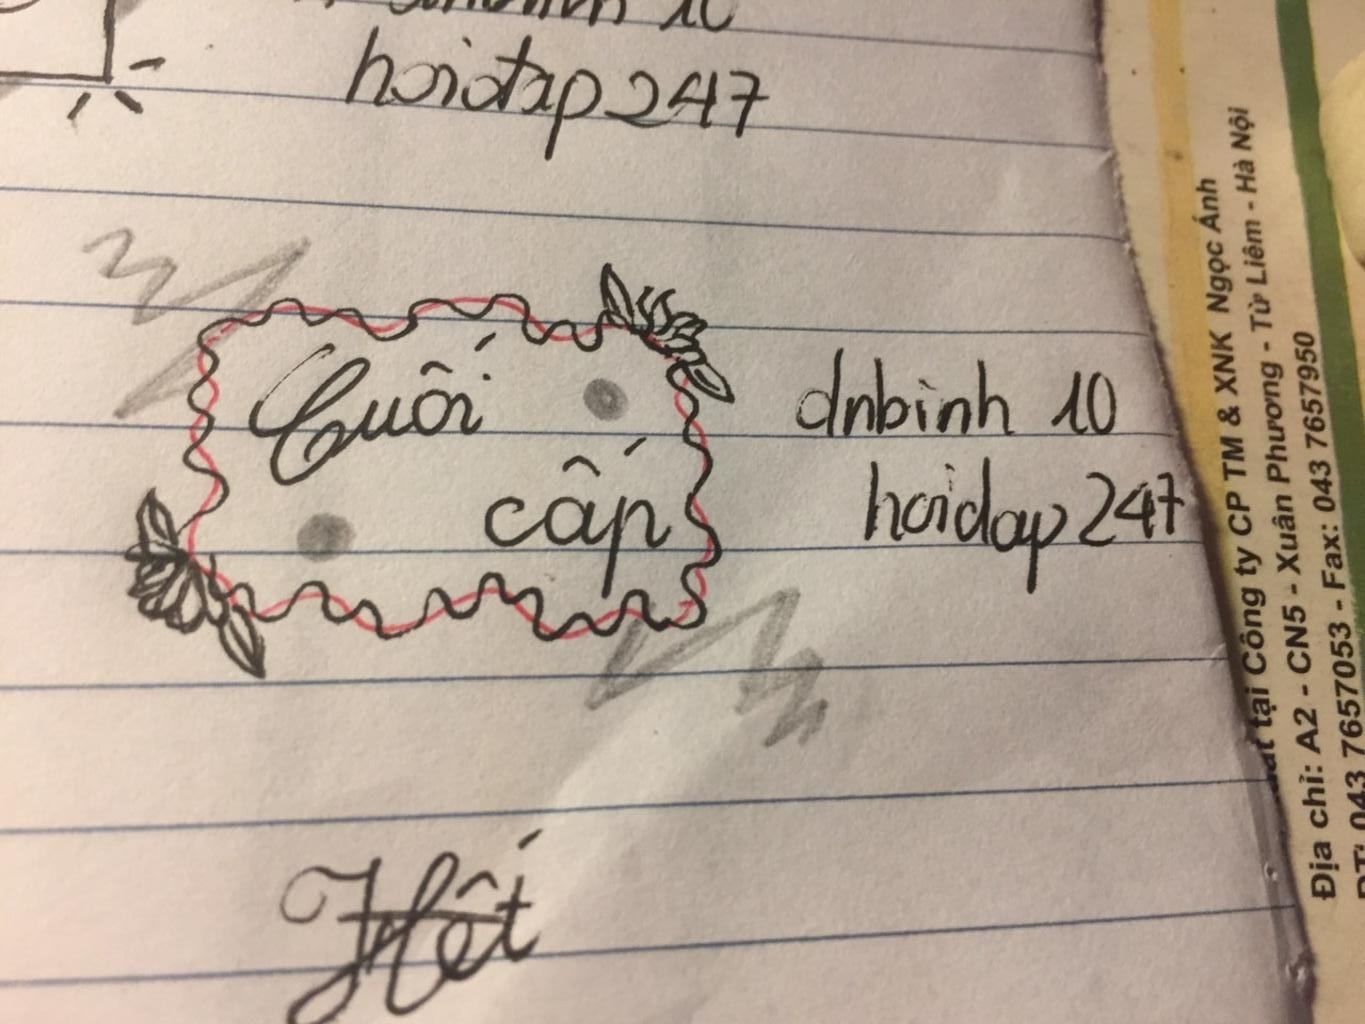 10
hoidap247
Cuối
cấp
dnbinh 10
hoidap247
Hết
tại Công ty CP TM & XNK Ngọc Ánh
Địa chỉ: A2 - CN5 - Xuân Phương - Từ Liêm - Hà Nội
043 7657053 - Fax: 043 7657950